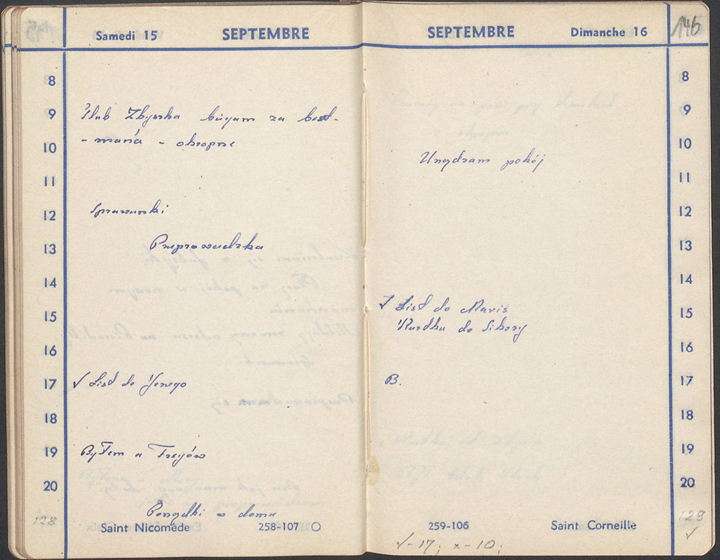 Samedi 15 SEPTEMBRE
8
9 Ślub Zbyszka bawiłem za best-
10 -mana - okropne
11
12 Sprawunki
13 Przeprowadzka
14
15
16
17 √ List do Jerzego
18
19 Byłem u Freyów
20
Porządki w domu
128 Saint Nicomède 258-107
SEPTEMBRE Dimanche 16 146
8
9
10 Urządzam pokój
11
12
13
14
15 √ List do Maris
Kartka do Sikory
16
17 B.
18
19
20
259-106 Saint Corneille 129
√-17; x-10; √